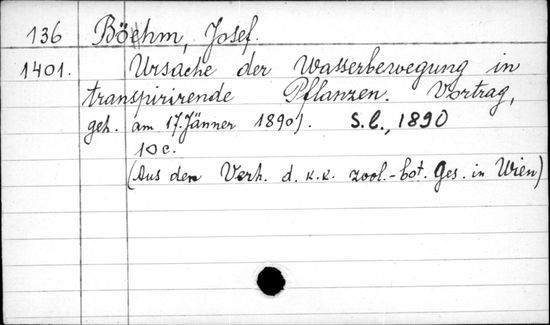 136 Böehm, Josef.
1401. Ursache der Wasserbewegung in
transpirirende Pflanzen. Vortrag,
geh. am 17. Jänner 1890). S.l., 1890
10c.
(Aus den Verh. d. K.K. zool.-bot. Ges. in Wien)